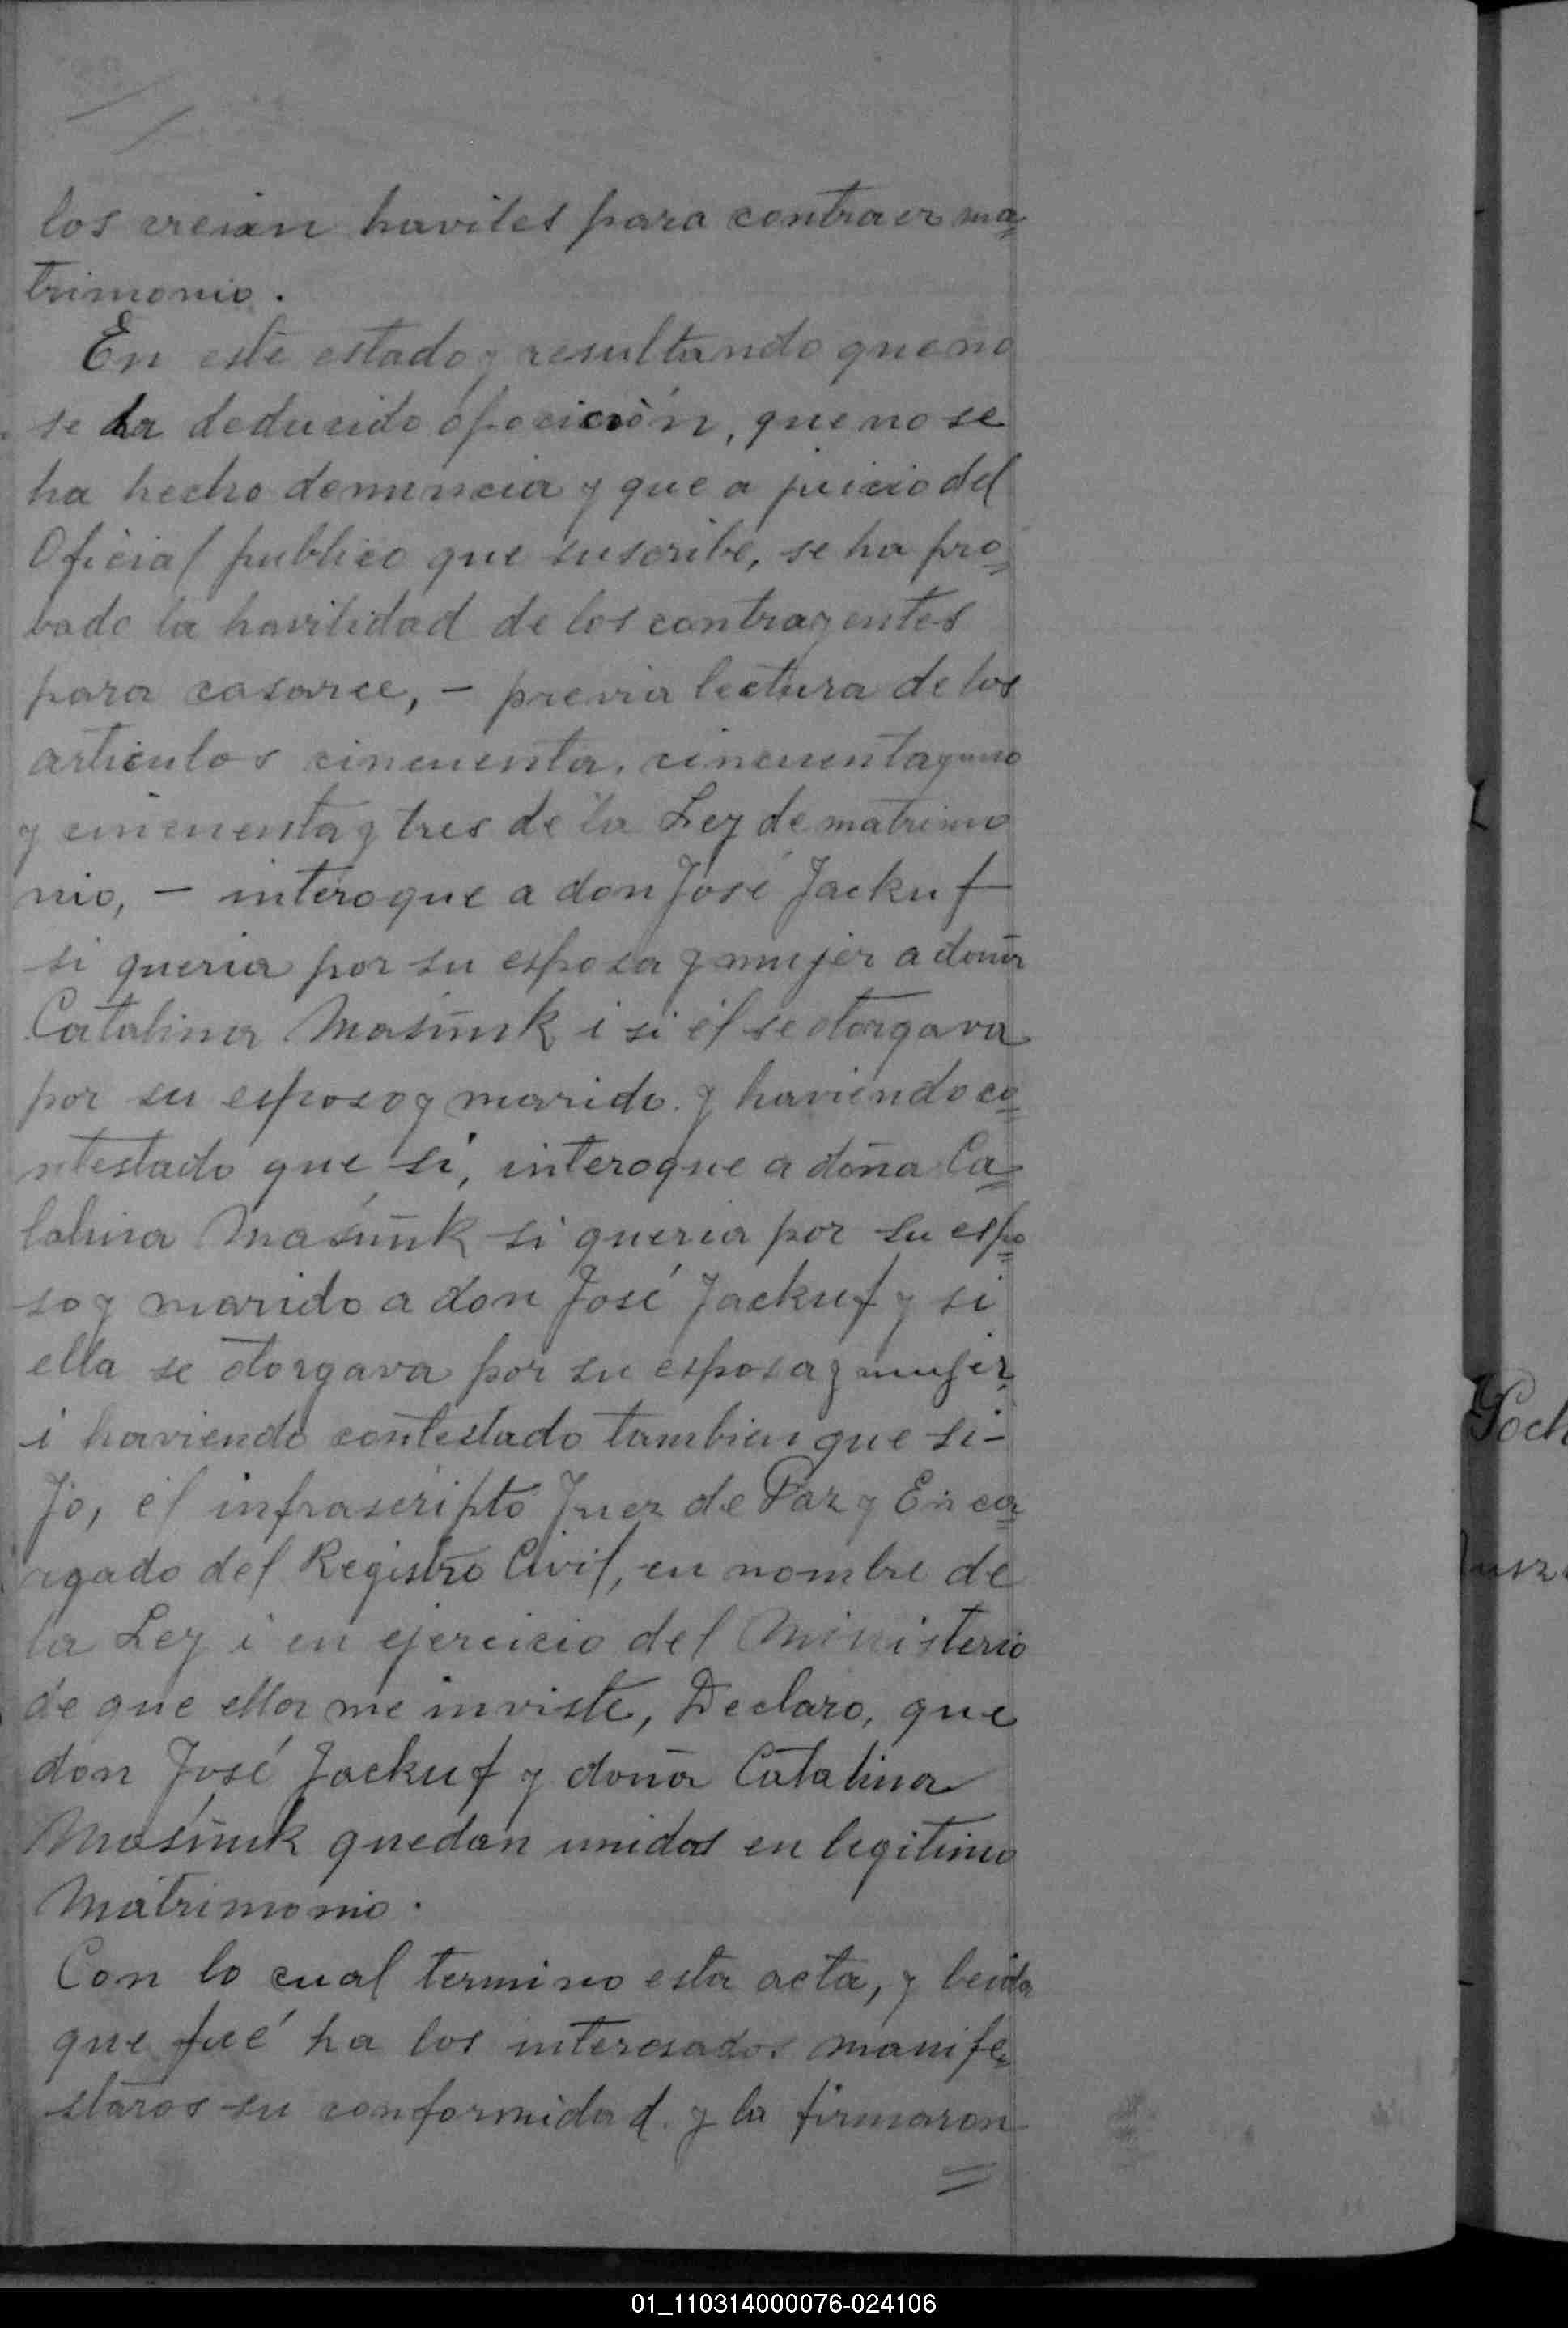 los creian haviles para contraer ma=
trimonio.
En este estado y resultando que no
se ha deducido oposición, que no se
ha hecho denuncia y que a juicio del
Oficial publico que suscribe, se ha pro=
bado la havilidad de los contrayentes
para casarce, - previa lectura de los
articulos cincuenta, cincuenta y uno
y cincuenta y tres de la Ley de matrimo
nio, - interoque a don José Jackuf
si queria por su esposa y mujer a doña
Catalina Masiuk i si él se otorgava
por su esposo y marido. y haviendo co=
ntestado que si, interoque a doña Ca=
talina Masiuk si queria por su espo=
so y marido a don José Jackuf y si
ella se otorgava por su esposa y mujer,
i haviendo contestado tambien que si-
Jo, él infrascripto Juez de Paz y Enca=
rgado del Registro Civil, en nombre de
la Ley i en ejercicio del Ministerio
de que ella me inviste, Declaro, que
don José Jackuf y doña Catalina
Masiuk quedan unidos en legitimo
Matrimonio.
Con lo cual termino esta acta, y leida
que fué ha los interesados manife=
staros su conformidad. y la firmaron
=
01_110314000076-024106